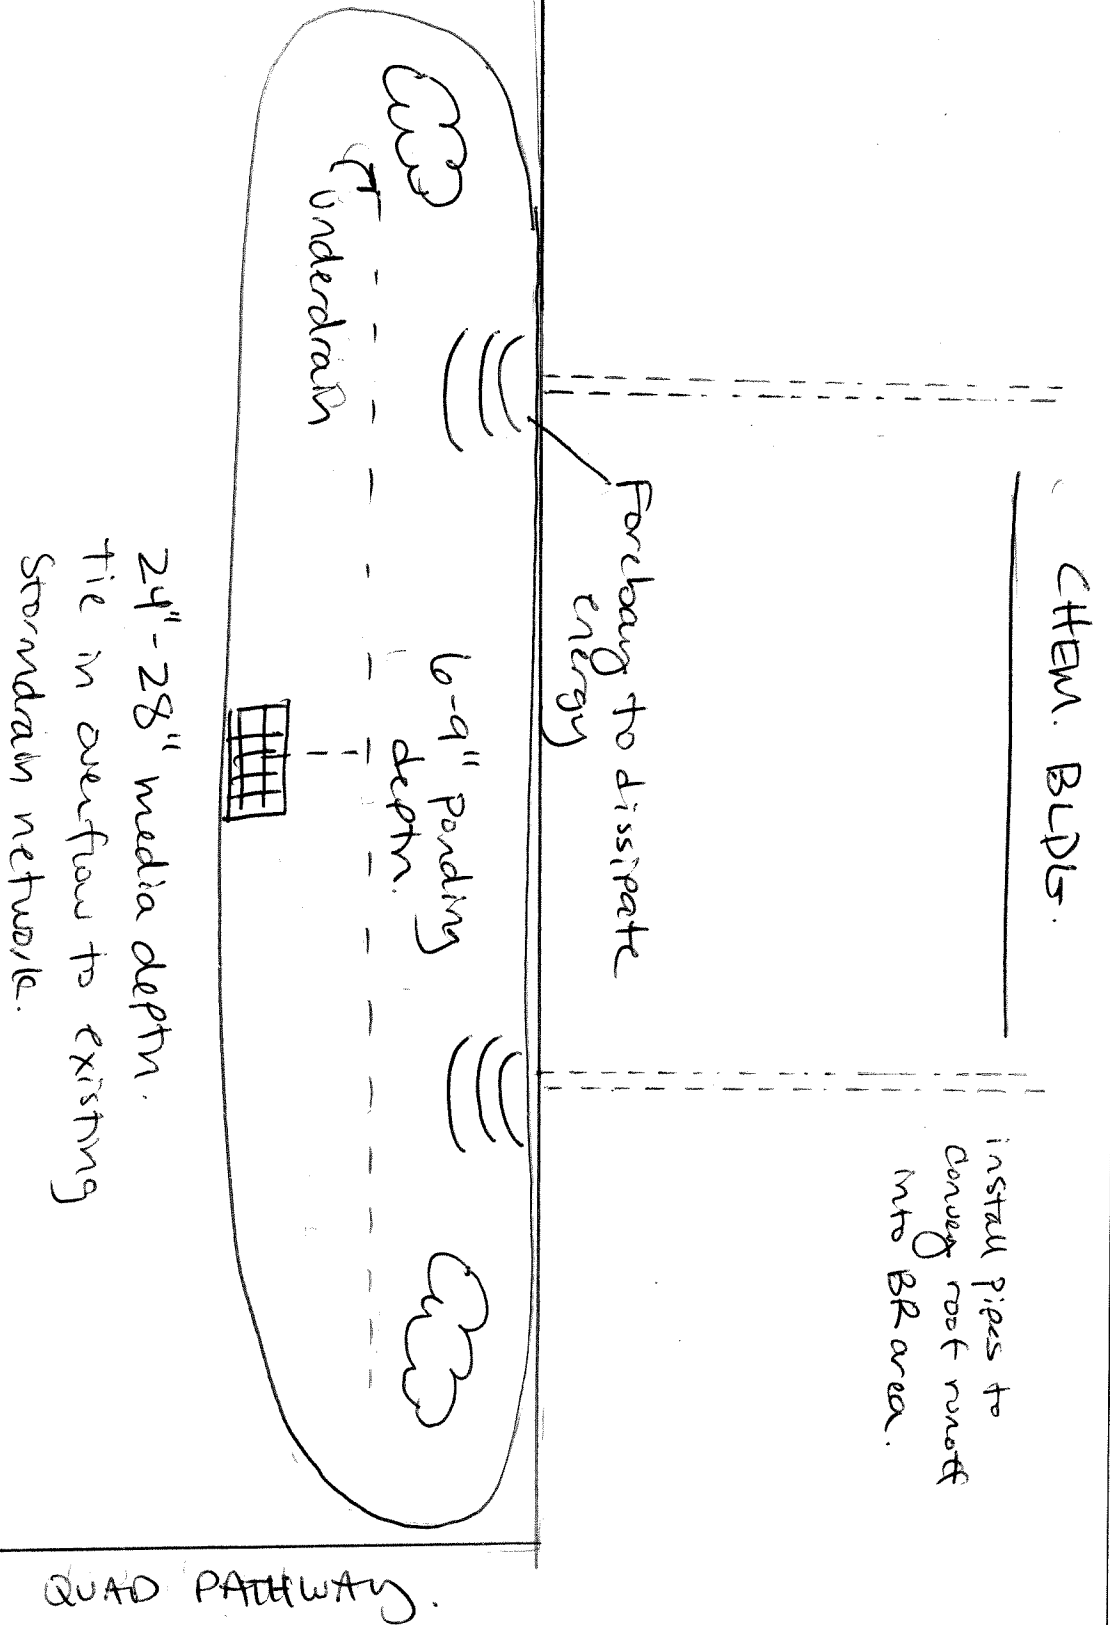 CHEM. BLDG.
install pipes to
convey roof runoff
into BR area.
Forebay to dissipate
energy
6-9" ponding
depth.
underdrain
24"-28" media depth.
Tie in overflow to existing
Stormdrain network.
QUAD PATHWAY.